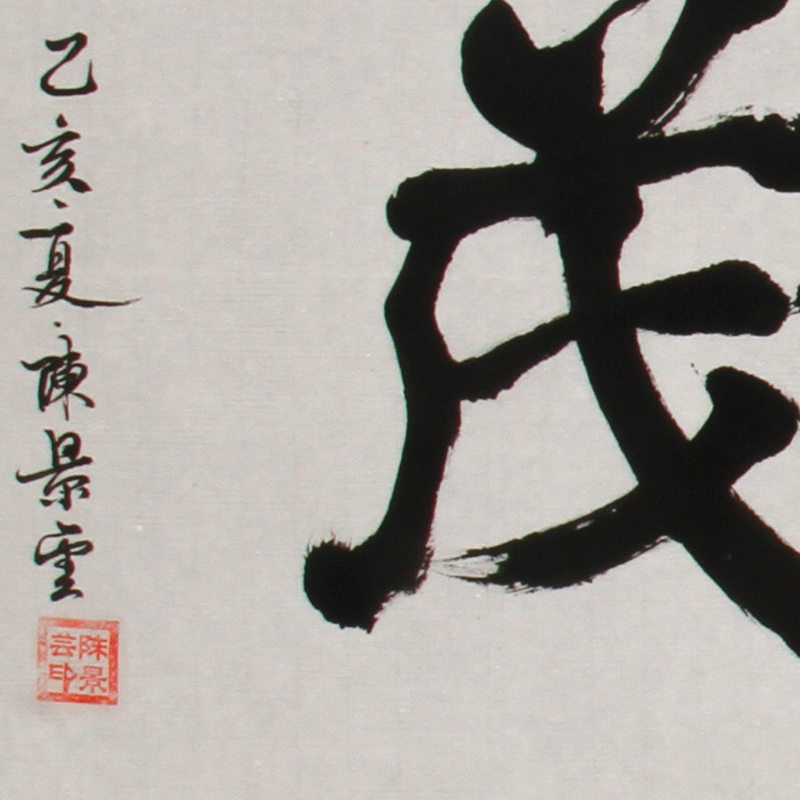 茂
乙亥夏陳景芸
陈景芸印